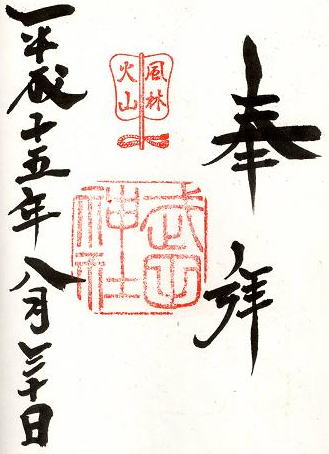 奉拝
風林
火山
武田
神社
平成十五年八月三十日